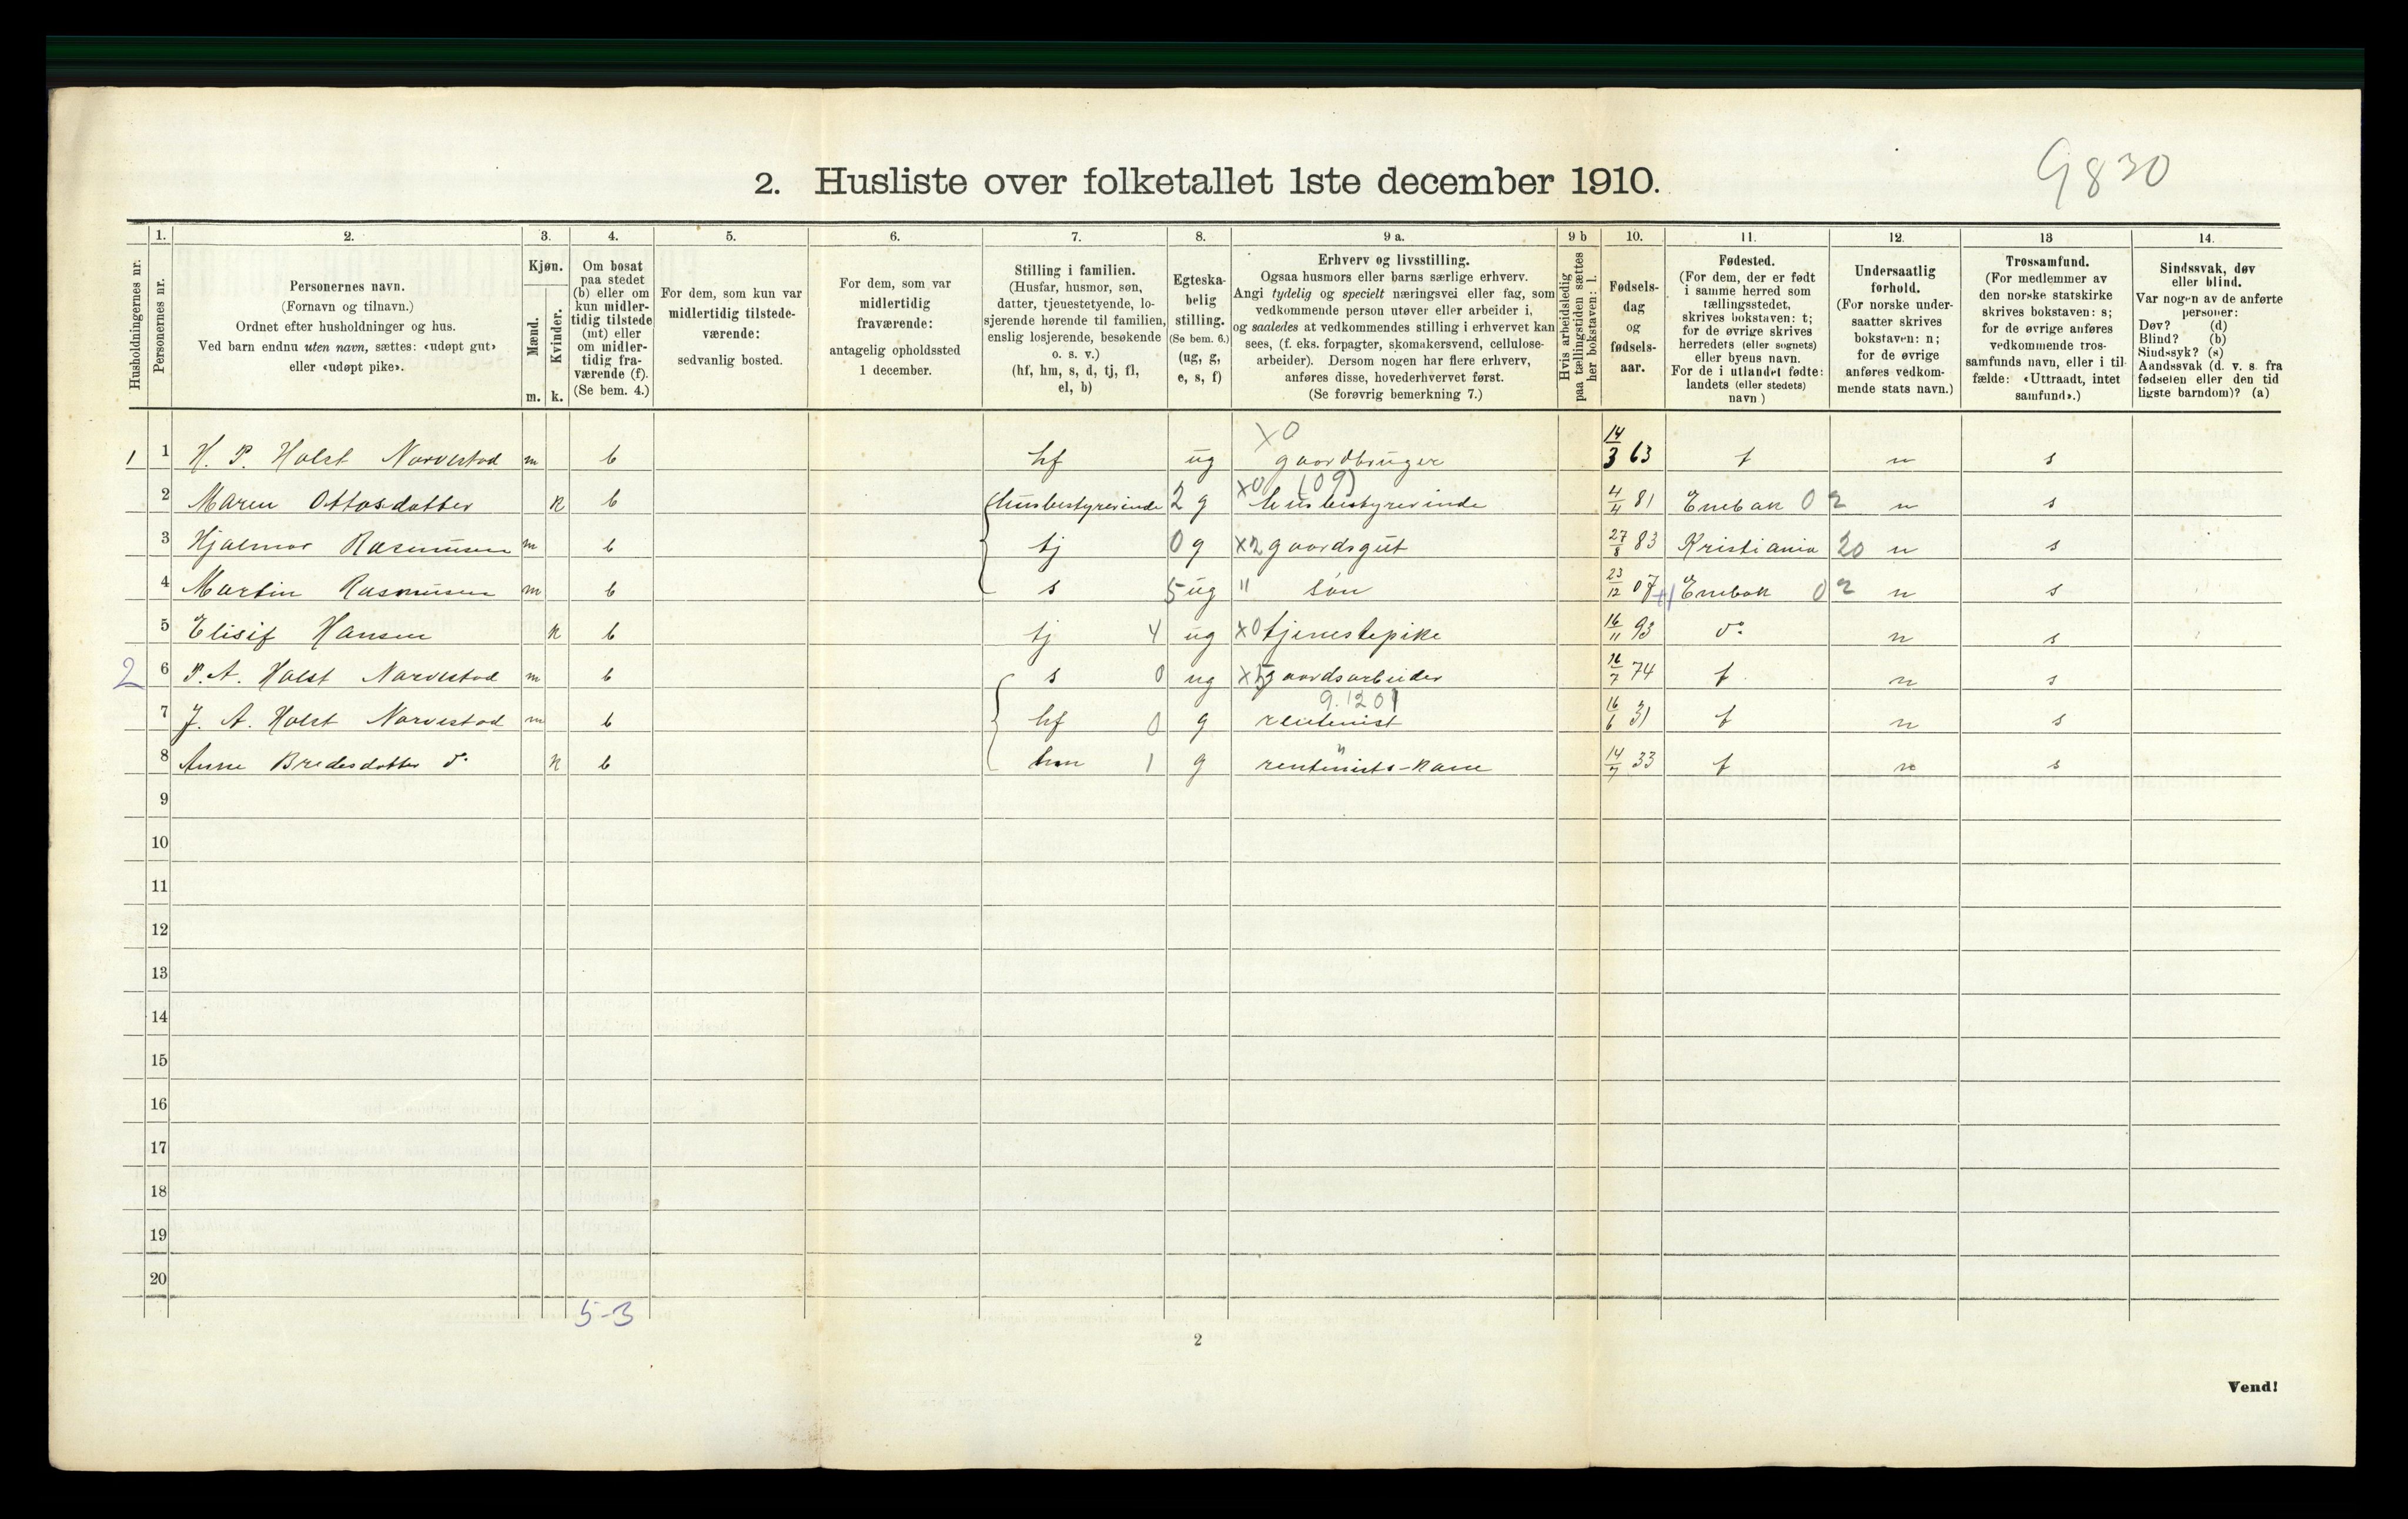 9830
2. Husliste over folketallet 1ste december 1910.
Husholdningernes nr.
1.
Personernes nr.
2.
Personernes navn.
(Fornavn og tilnavn.)
Ordnet efter husholdninger og hus.
Ved barn endnu uten navn, sættes: «udøpt gut»
eller «udøpt pike».
3.
Kjøn.
Mænd.
Kvinder.
m. k.
4.
Om bosat
paa stedet
(b) eller om
kun midler-
tidig tilstede
(mt) eller
om midler-
tidig fra-
værende (f).
(Se bem. 4.)
5.
For dem, som kun var
midlertidig tilstede-
værende:
sedvanlig bosted.
6.
For dem, som var
midlertidig
fraværende:
antagelig opholdssted
1 december.
7.
Stilling i familien.
(Husfar, husmor, søn,
datter, tjenestetyende, lo-
sjerende hørende til familien,
enslig losjerende, besøkende
o. s. v.)
(hf, hm, s, d, tj, fl,
el, b)
8.
Egteska-
belig
stilling.
(Se bem. 6.)
(ug, g,
e, s, f)
9 a.
Erhverv og livsstilling.
Ogsaa husmors eller barns særlige erhverv.
Angi tydelig og specielt næringsvei eller fag, som
vedkommende person utøver eller arbeider i,
og saaledes at vedkommendes stilling i erhvervet kan
sees, (f. eks. forpagter, skomakersvend, cellulose-
arbeider). Dersom nogen har flere erhverv,
anføres disse, hovederhvervet først.
(Se forøvrig bemerkning 7.)
9 b
Hvis arbeidsledig
paa tællingstiden sættes
her bokstaven: l.
10.
Fødsels-
dag
og
fødsels-
aar.
11.
Fødested.
(For dem, der er født
i samme herred som
tællingsstedet,
skrives bokstaven: t;
for de øvrige skrives
herredets (eller sognets)
eller byens navn.
For de i utlandet fødte:
landets (eller stedets)
navn.)
12.
Undersaatlig
forhold.
(For norske under-
saatter skrives
bokstaven: n;
for de øvrige
anføres vedkom-
mende stats navn.)
13
Trossamfund.
(For medlemmer av
den norske statskirke
skrives bokstaven: s;
for de øvrige anføres
vedkommende tros-
samfunds navn, eller i til-
fælde: «Uttraadt, intet
samfund».)
14.
Sindssvak, døv
eller blind.
Var nogen av de anførte
personer:
Døv? (d)
Blind? (b)
Sindssyk? (s)
Aandssvak (d. v. s. fra
fødselen eller den tid
ligste barndom)? (a)
1 1 H. P. Holst Narvestad m b hf ug X0 gaardbruger 14/3 63 t n s
2 Maren Ottosdatter k b husbestyrerinde 2 g X0 (09) husbestyrerinde 4/4 81 Enebak 02 n s
3 Hjalmar Rasmusen m b tj 0 g X2 gaardsgut 27/8 83 Kristiania 20 n s
4 Martin Rasmusen m b s 5 ug " søn 23/12 07 Enebak 02 n s
5 Elisif Hansen k b tj 4 ug X0 tjenestepike 16/11 93 do n s
2 6 P. A. Holst Narvestad m b s 0 ug gaardsarbeider 16/7 74 t n s
7 J. A. Holst Narvestad m b hf 0 g 9.1201 rentenist 16/6 31 t n s
8 Anne Bredesdatter do k b hm 1 g " rentenists-kone 14/7 33 t n s
9
10
11
12
13
14
15
16
17
18
19
20
5-3
2
Vend!